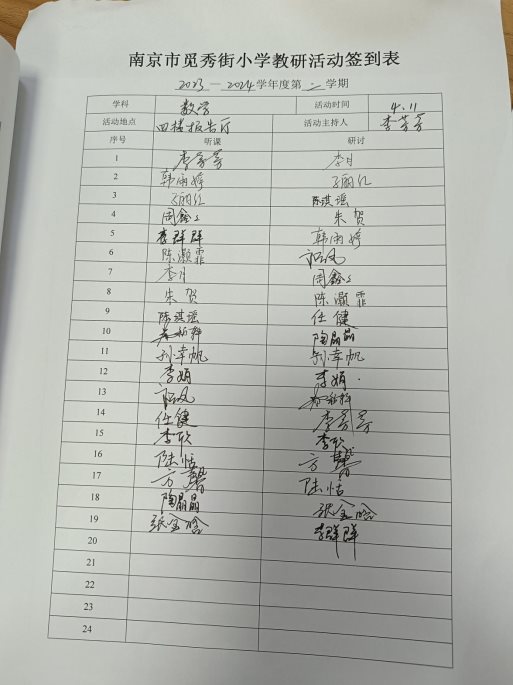 南京市觅秀街小学教研活动签到表
2023—2024学年度第二学期
学科 数学 活动时间 4.11
活动地点 四楼报告厅 活动主持人 李芳芳
序号 听课 研讨
1 李芳芳 李月
2 韩雨婷 丁丽红
3 丁丽红 陈淇瑶
4 周鑫 朱贺
5 李群群 韩雨婷
6 陈灏霏
7 李月 周鑫
8 朱贺 陈灏霏
9 陈淇瑶 任健
10 陶晶晶
11 孙幸帆 孙幸帆
12 李娟 李娟
13
14 任健 李芳芳
15 李歌 李歌
16 陆恬 方馨
17 方馨 陆恬
18 陶晶晶 张金晗
19 张金晗 李群群
20
21
22
23
24